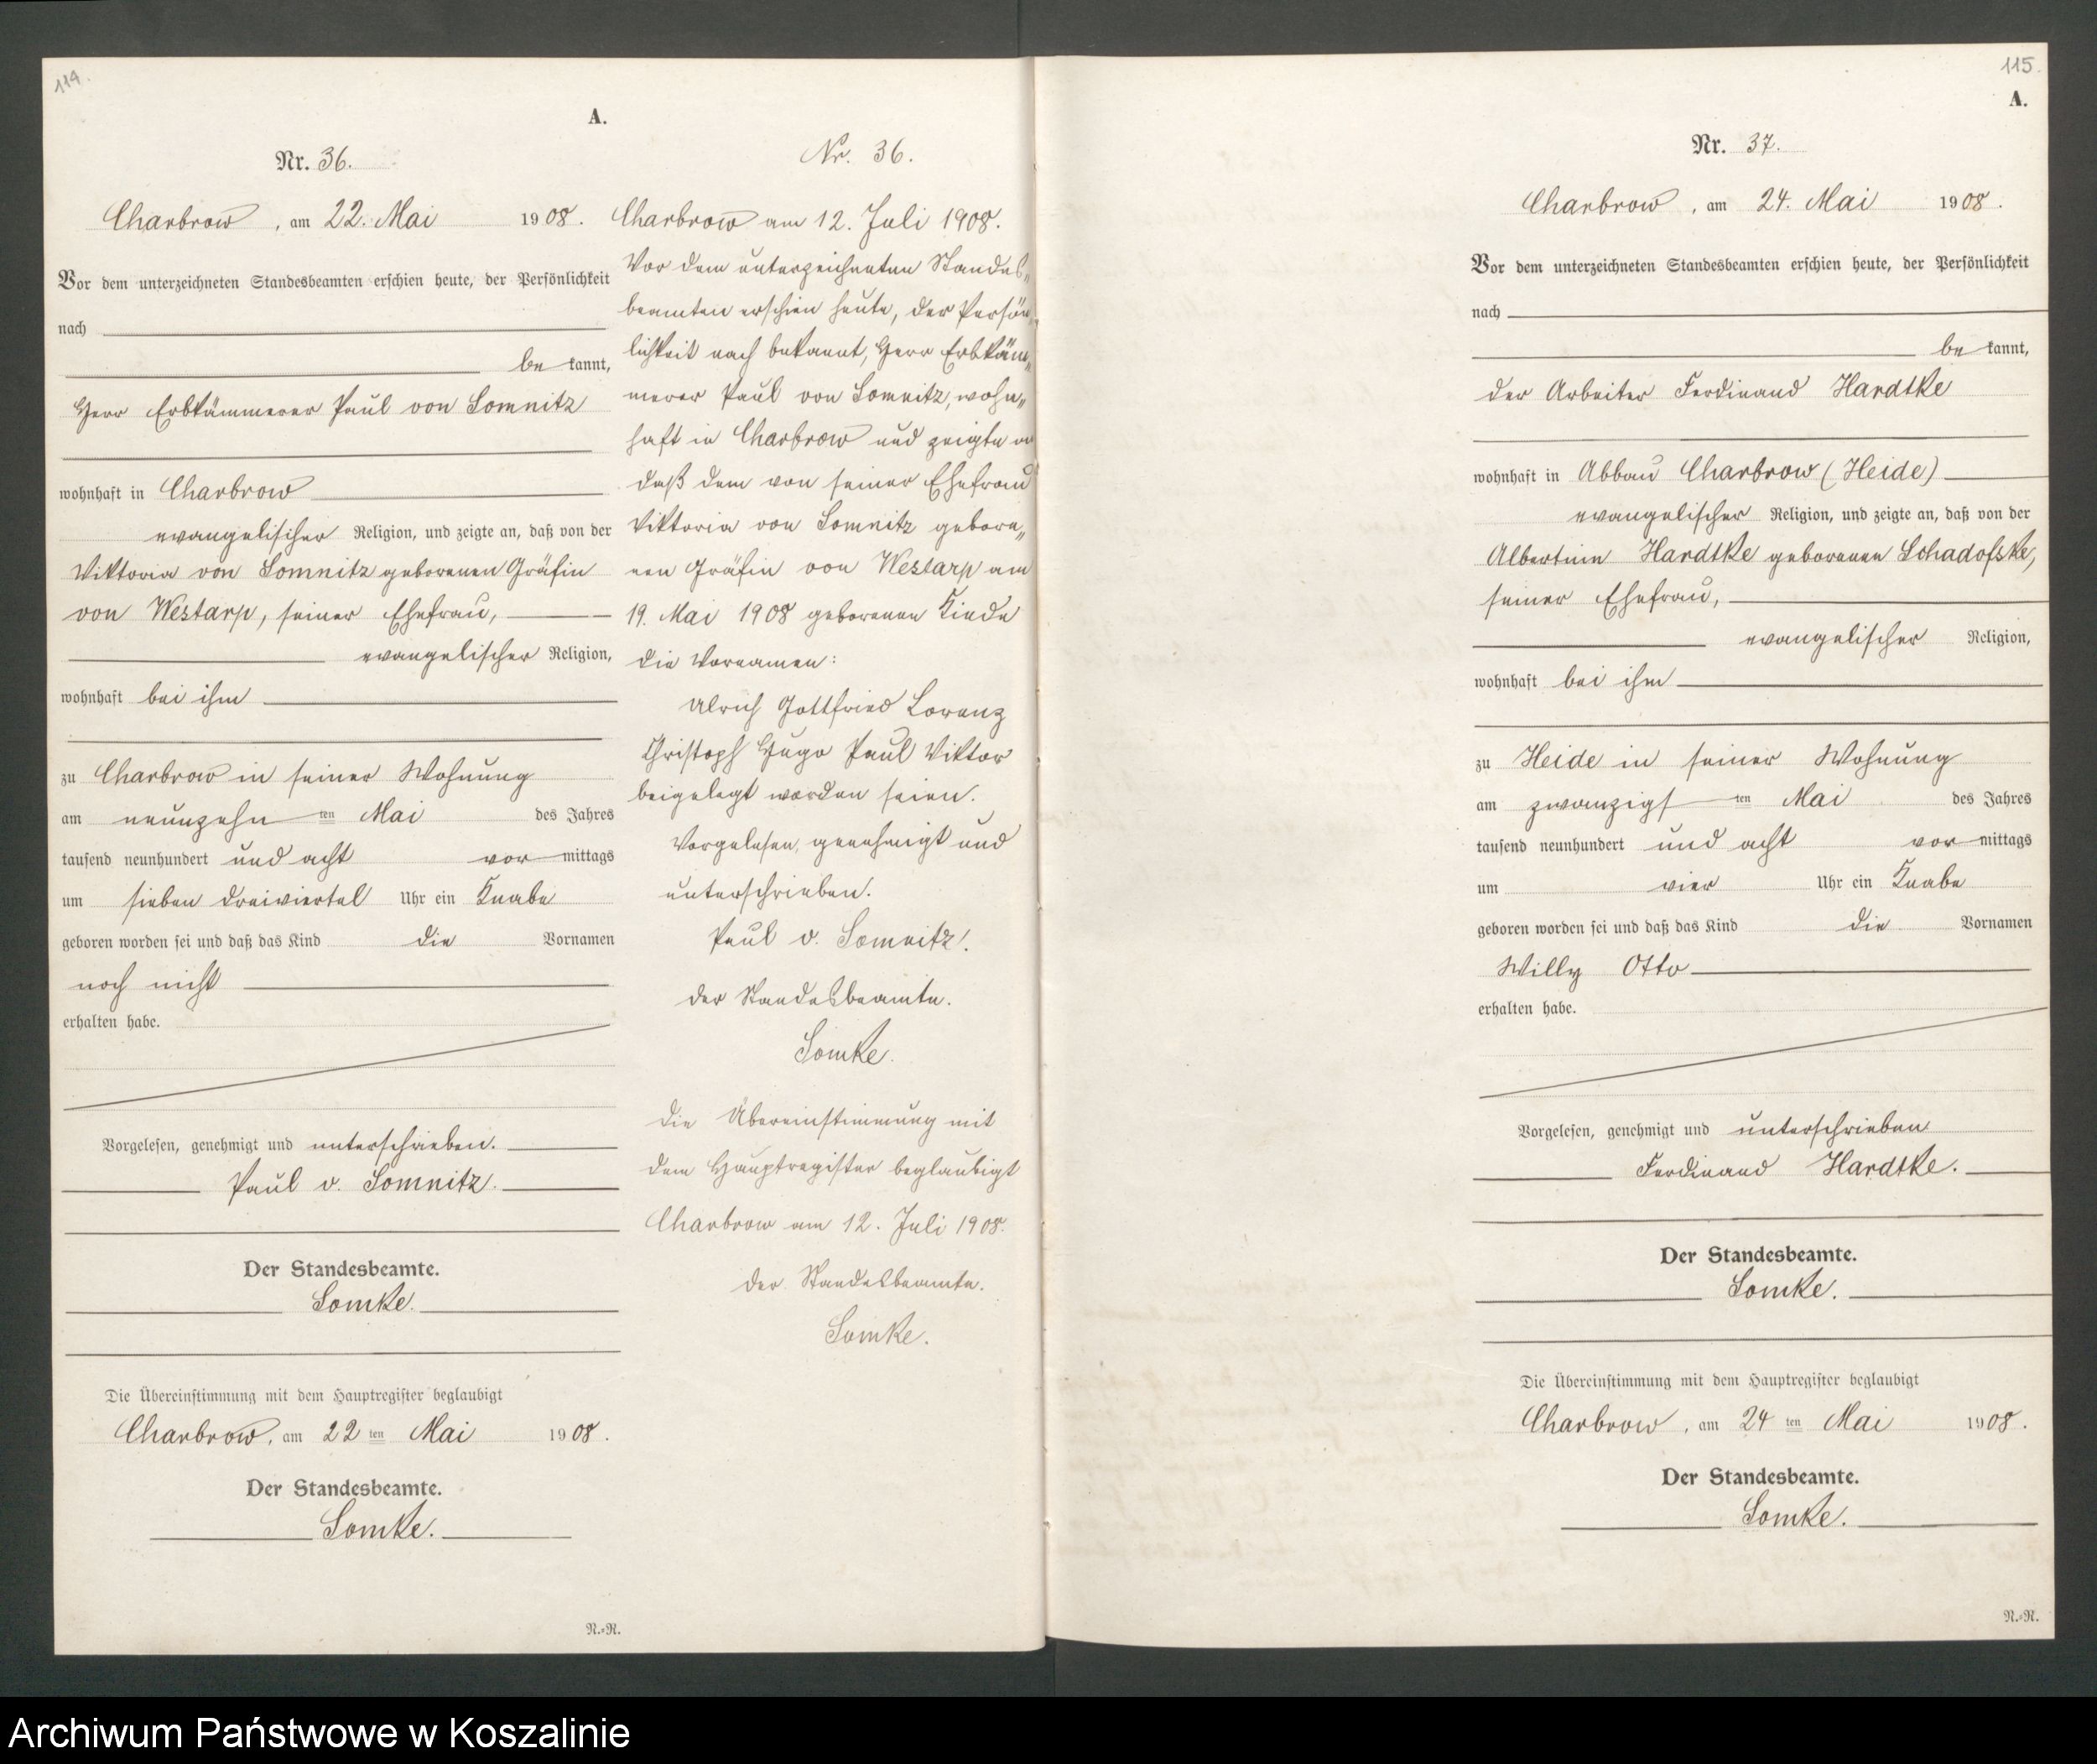 114.
A.
Nr. 36.
Charbrow, am 22. Mai 1908.
Vor dem unterzeichneten Standesbeamten erschien heute, der Persönlichkeit
nach
be kannt,
Herr Erbkämmerer Paul von Somnitz
wohnhaft in Charbrow
evangelischer Religion, und zeigte an, daß von der
Viktoria von Somnitz geborenen Gräfin
von Westarp, seiner Ehefrau,
evangelischer Religion,
wohnhaft bei ihm
zu Charbrow in seiner Wohnung
am neunzehn ten Mai des Jahres
tausend neunhundert und acht vor mittags
um sieben dreiviertel Uhr ein Knabe
geboren worden sei und daß das Kind die Vornamen
noch nicht
erhalten habe.
Vorgelesen, genehmigt und unterschrieben.
Paul v. Somnitz.
Der Standesbeamte.
Somke.
Die Übereinstimmung mit dem Hauptregister beglaubigt
Charbrow, am 22 ten Mai 1908.
Der Standesbeamte.
Somke.
N.=N.
Nr. 36.
Charbrow am 12. Juli 1908.
Vor dem unterzeichneten Standes„
beamten erschien heute, der Persön„
lichkeit nach bekannt, Herr Erbkäm„
merer Paul von Somnitz, wohn„
haft in Charbrow und zeigte an
daß dem von seiner Ehefrau
Viktoria von Somnitz gebore„
nen Gräfin von Westarp am
19. Mai 1908 geborenen Kinde
die Vornamen:
Ulrich Gottfried Lorenz
Christoph Hugo Paul Viktor
beigelegt worden seien.
Vorgelesen, genehmigt und
unterschrieben.
Paul v. Somnitz.
Der Standesbeamte.
Somke.
Die Übereinstimmung mit
dem Hauptregister beglaubigt
Charbrow am 12. Juli 1908.
Der Standesbeamte.
Somke.
115.
A.
Nr. 37.
Charbrow, am 24. Mai 1908.
Vor dem unterzeichneten Standesbeamten erschien heute, der Persönlichkeit
nach
be kannt,
der Arbeiter Ferdinand Hardtke
wohnhaft in Abbau Charbrow (Heide)
evangelischer Religion, und zeigte an, daß von der
Hardtke geborenen Schadofske,
seiner Ehefrau,
evangelischer Religion,
wohnhaft bei ihm
zu Heide in seiner Wohnung
am zwanzigs ten Mai des Jahres
tausend neunhundert und acht vor mittags
um vier Uhr ein Knabe
geboren worden sei und daß das Kind die Vornamen
Willy Otto
erhalten habe.
Vorgelesen, genehmigt und unterschrieben
Ferdinand Hardtke.
Der Standesbeamte.
Somke.
Die Übereinstimmung mit dem Hauptregister beglaubigt
Charbrow, am 24 ten Mai 1908.
Der Standesbeamte.
Somke.
N.=N.
Archiwum Państwowe w Koszalinie